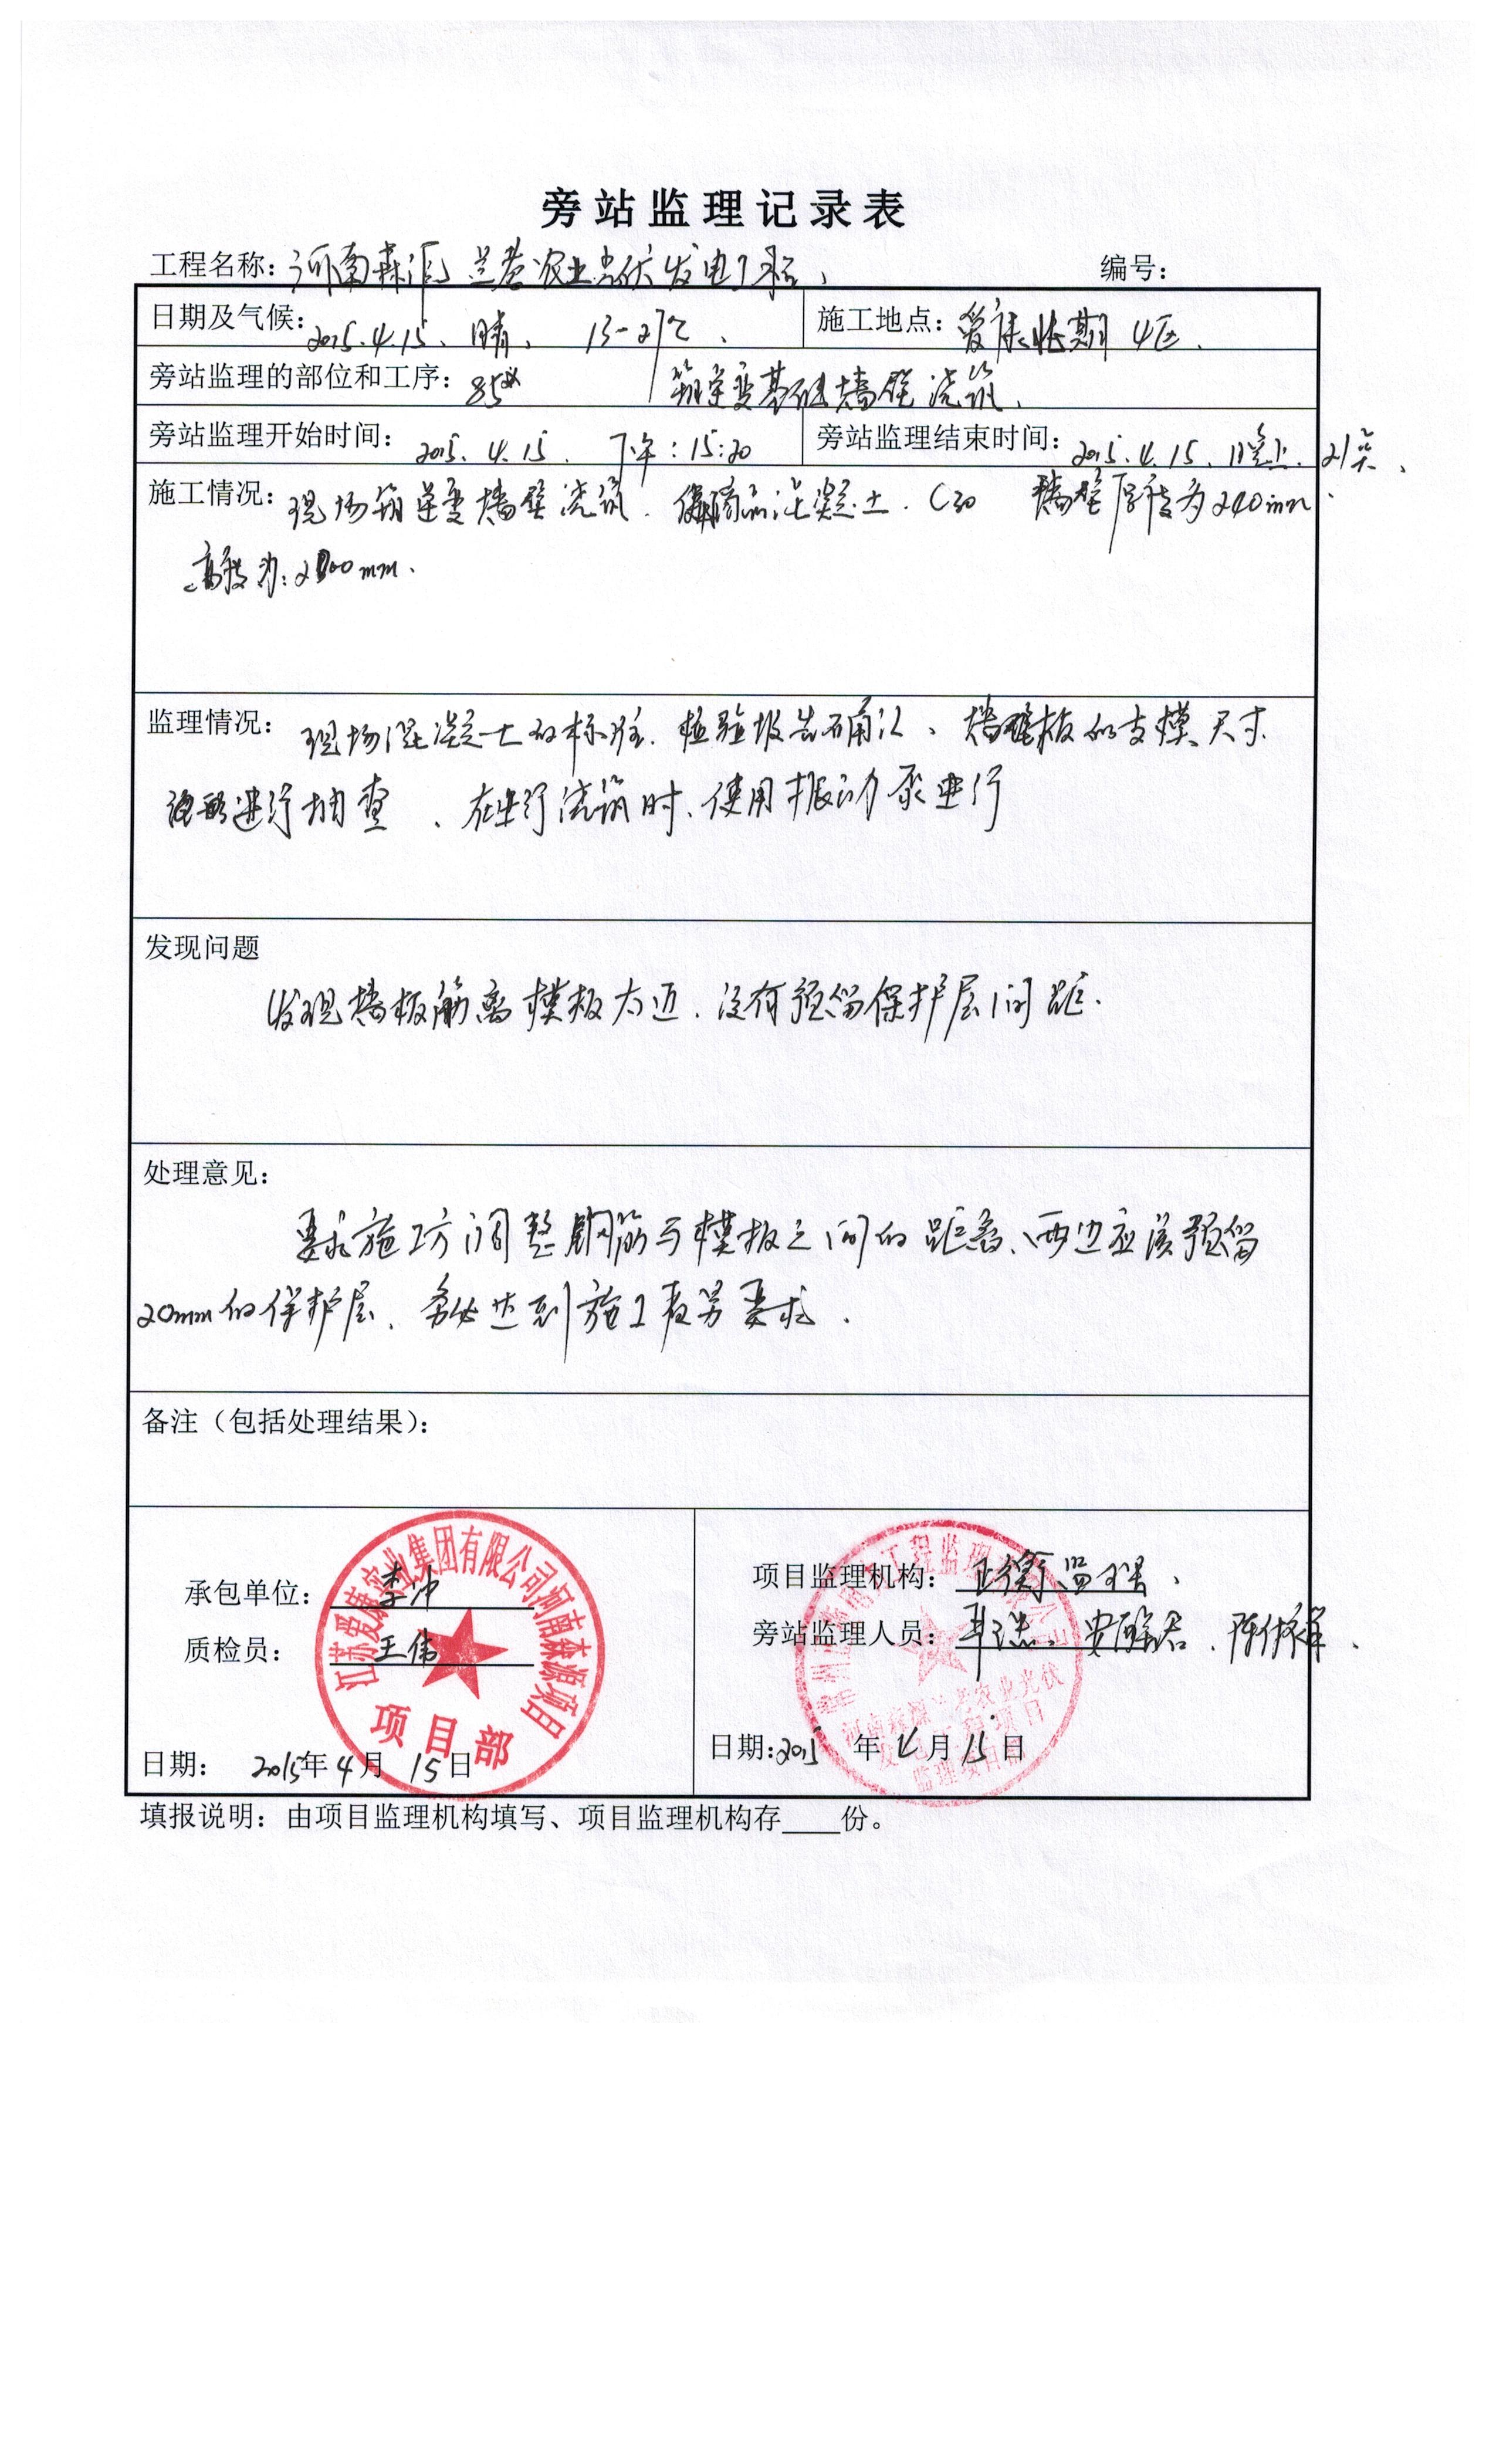 旁站监理记录表
工程名称：河南森源兰考农业光伏发电工程、 编号：
日期及气候：2015.4.15、晴、 13-27℃、 施工地点：爱康 期 4区、
旁站监理的部位和工序：85# 箱逆变基础墙壁浇筑、
旁站监理开始时间：2015.4.15. 下午：15:20 旁站监理结束时间：2015.4.15、晚上、21点、
施工情况：现场箱逆变墙壁浇筑、 商品混凝土、C30 墙壁厚度为240mm.
高度为：2 00mm.
监理情况：现场混凝土的标准、检验报告确认、墙壁板的支模尺寸
进行抽查、在进行浇筑时、使用振动泵进行
发现问题
发现墙板筋离模板太近、没有预留保护层间距.
处理意见：
要求施工方调整钢筋与模板之间的距离、两边应该预留
20mm的保护层、务必达到施工 要求.
备注（包括处理结果）：
江苏爱康实业集团有限公司河南森源项目
项目部
承包单位：李冲
质检员：王伟
日期：2015年4月15日
工程监理
河南森源兰考农业光伏
发电工程项目
监理项目部
项目监理机构： 监理、
旁站监理人员：
日期：2015年4月15日
填报说明：由项目监理机构填写、项目监理机构存____份。